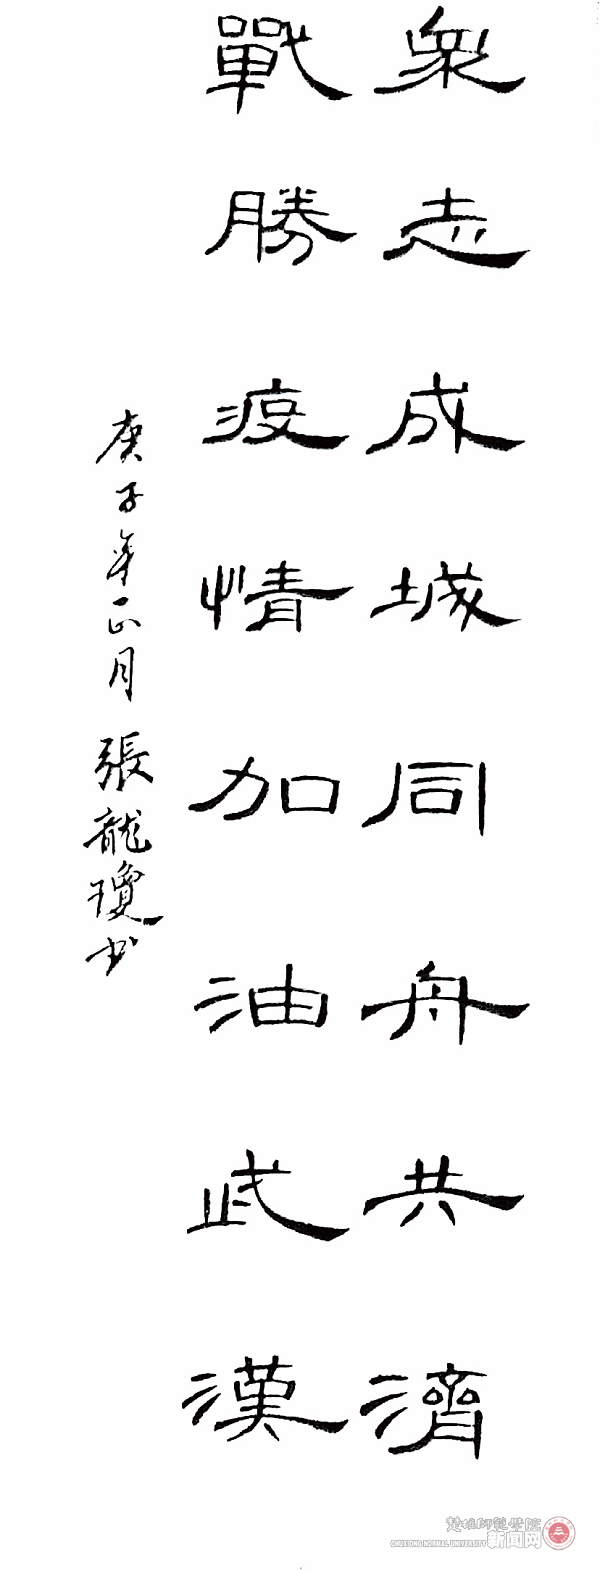 眾志成城同舟共濟
戰勝疫情加油武漢
庚子年正月張龍瓊书
楚雄師範學院
CHUXIONG NORMAL UNIVERSITY
新闻网